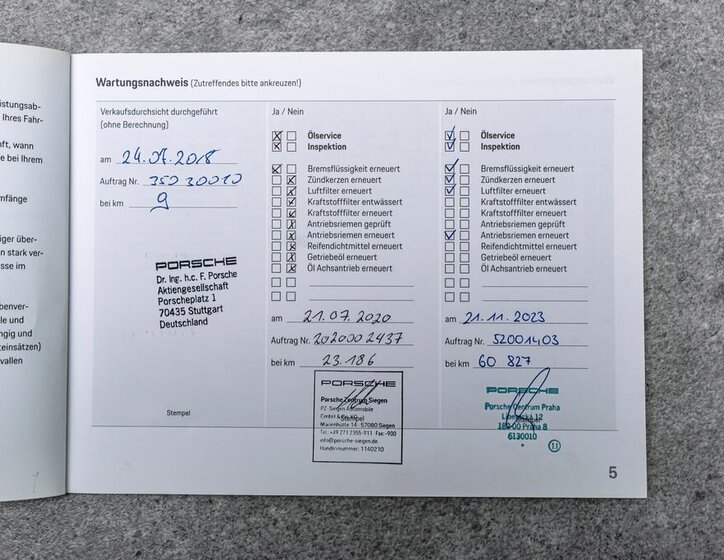 istungsab-
Ihres Fahr-
nft, wann
e bei Ihrem
mfänge
iger über-
en stark ver-
sse im
benver-
le und
ngig und
teinsätzen)
vallen
Wartungsnachweis (Zutreffendes bitte ankreuzen!)
Verkaufsdurchsicht durchgeführt
(ohne Berechnung)
am 24.07.2018
Auftrag Nr. 35030010
bei km 9
PORSCHE
Dr. Ing. h.c. F. Porsche
Aktiengesellschaft
Porscheplatz 1
70435 Stuttgart
Deutschland
Stempel
Ja / Nein
Ölservice
Inspektion
Bremsflüssigkeit erneuert
Zündkerzen erneuert
Luftfilter erneuert
Kraftstofffilter entwässert
Kraftstofffilter erneuert
Antriebsriemen geprüft
Antriebsriemen erneuert
Reifendichtmittel erneuert
Getriebeöl erneuert
Öl Achsantrieb erneuert
am 21.07.2020
Auftrag Nr. 202000 2437
bei km 23.186
PORSCHE
Porsche Zentrum Siegen
PZ Siegen Automobile
GmbH &
Stempel
Marienhütte 14 57080 Siegen
Tel.: +49 271 2355-911 Fax -900
info@porsche-siegen.de
Händlernummer: 1140210
Ja / Nein
Ölservice
Inspektion
Bremsflüssigkeit erneuert
Zündkerzen erneuert
Luftfilter erneuert
Kraftstofffilter entwässert
Kraftstofffilter erneuert
Antriebsriemen geprüft
Antriebsriemen erneuert
Reifendichtmittel erneuert
Getriebeöl erneuert
Öl Achsantrieb erneuert
am 21.11.2023
Auftrag Nr. 52001403
bei km 60 827
PORSCHE
Porsche Centrum Praha
Liberecká 12
182 00 Praha 8
6130010
11
5